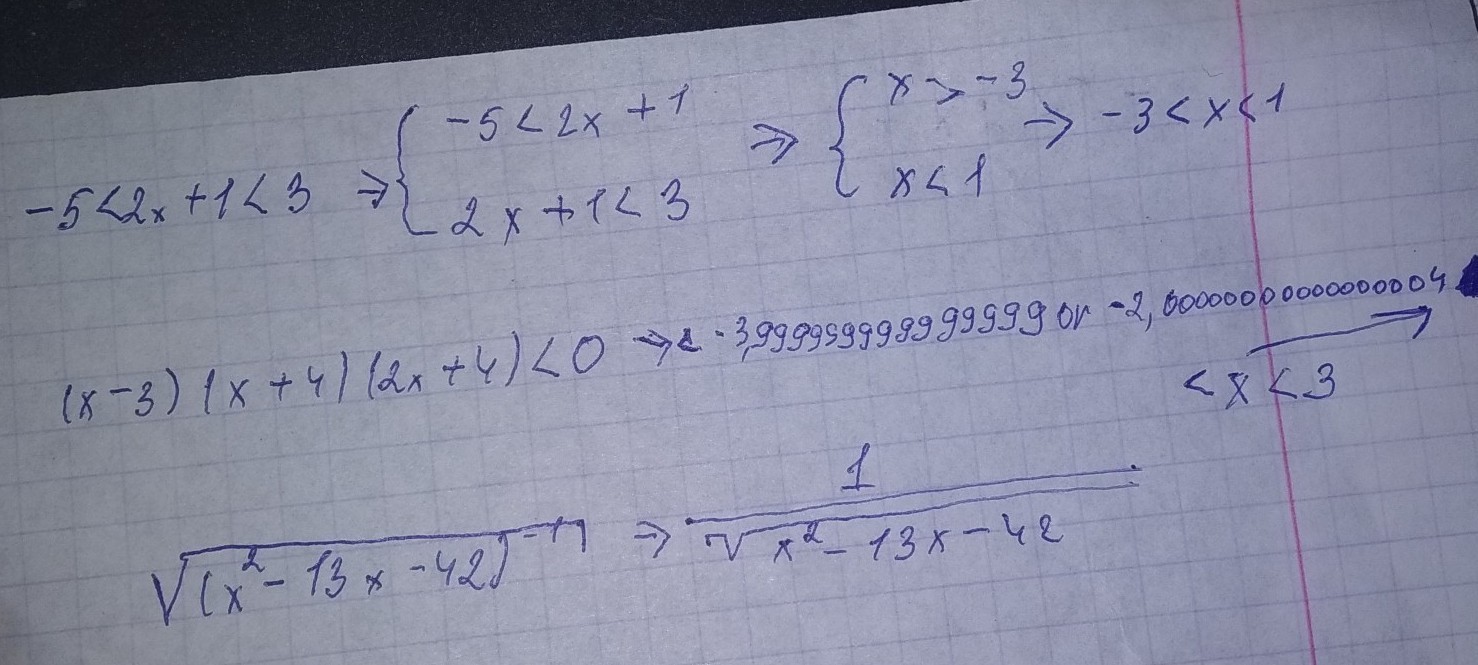 -5<2x+1<3 ⇒ { -5<2x+1 2x+1<3 ⇒ { x>-3 x<1 ⇒ -3<x<1
(x-3)(x+4)(2x+4)<0 ⇒ -3,9999999999999999 or -2,000000000000000004 <x<3
√(x²-13x-42)⁻¹ ⇒ 1/√x²-13x-42